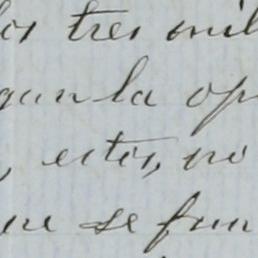 los tres mil
gun la op
, estos, no
ue se fun